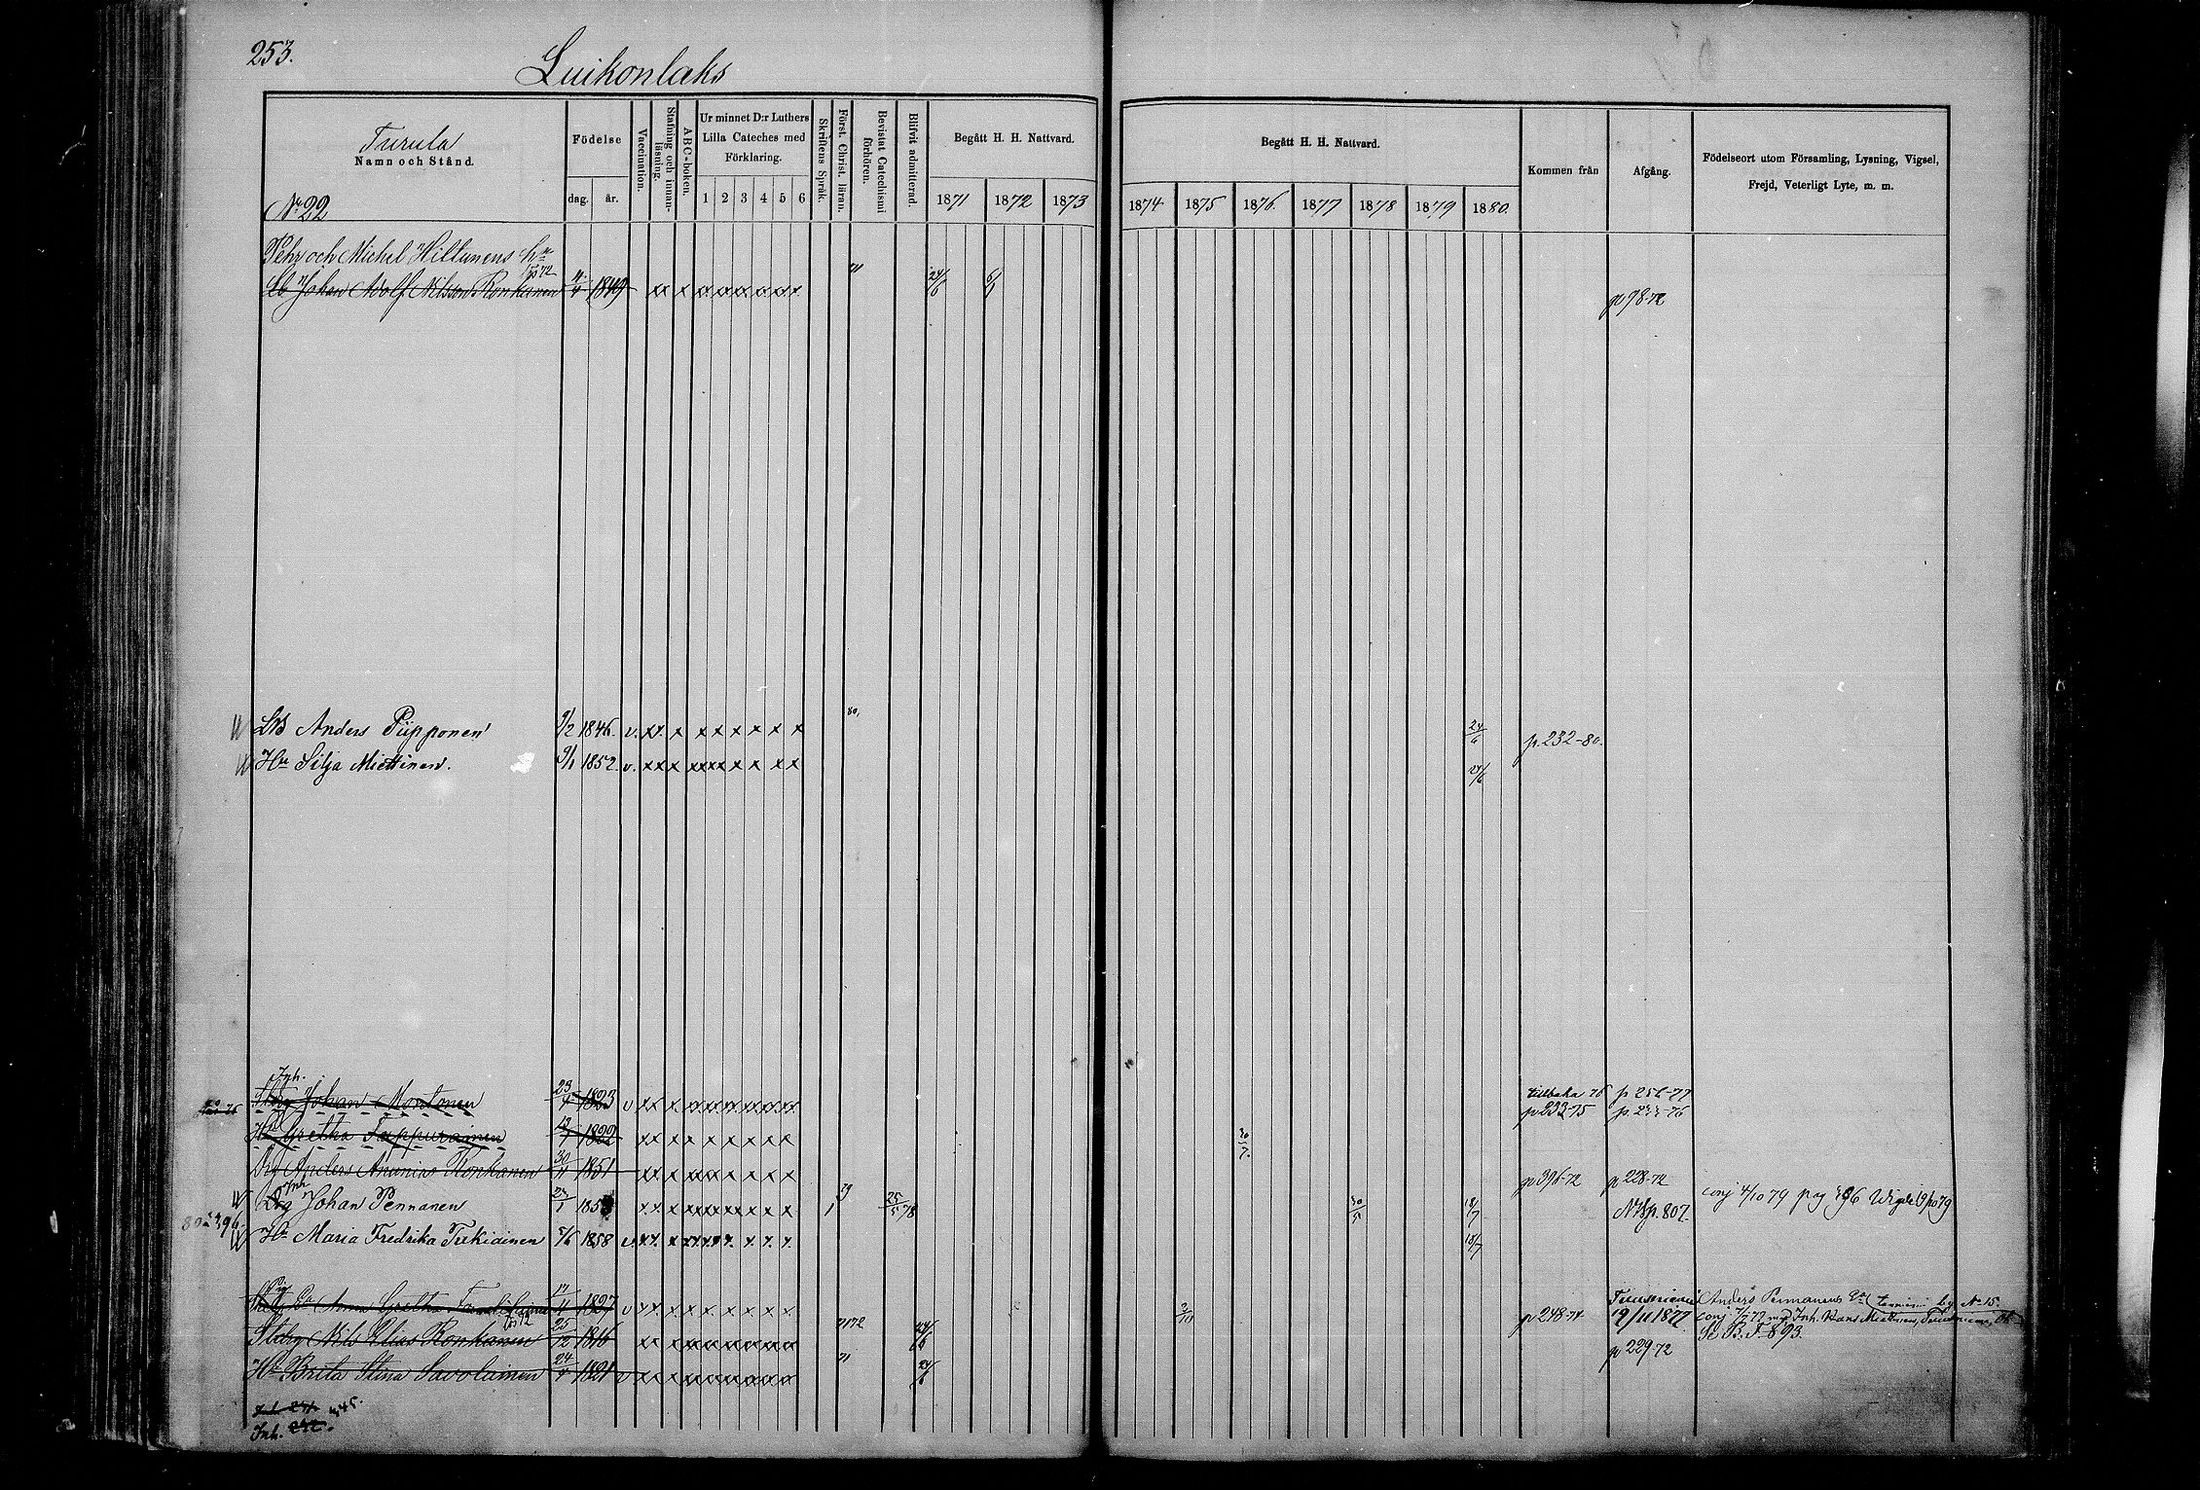 253.
Luikonlaks
Turula
Namn och Stånd.
No 22
Födelse
dag. år.
Vaccination.
Stafning och innan-läsning.
ABC-boken.
Ur minnet D:r Luthers
Lilla Cateches med
Förklaring.
1 2 3 4 5 6
Skriftens Språk.
Först. Christ. läran.
Bevistat Catechismi förhören.
Blifvit admitterad.
Begått H. H. Nattvard.
1871 1872 1873
Begått H. H. Nattvard.
1874 1875 1876 1877 1878 1879 1880.
Kommen från
Afgång.
Födelseort utom Församling, Lysning, Vigsel,
Frejd, Veterligt Lyte, m. m.
Pehr och Michel Hiltunens
Johan Adolf Nilsson Ronkanen 1849 xx x x x x x x x 71 24/6 p 98-72
Anders Piipponen 9/2 1846. v. xx x x x x x x x 80, 24/6 p. 232-80.
Hu Silja Miettinen. 9/1 1852. v. xx x x x x x x x 24/6
Inh.
Johan Montonen 23/4 1823 v xx x x x x x x x tillbaka 76 p 252-77
p 233-75
Hu Gretha Tappurainen 1822 xx x x x x x x x 30/7.
Drg Anders Ananias Honkanen 30/11 1851 xx x x x x x x x p 396-72 p 228-72
Inh
Drg Johan Pennanen 1858 xx x x x x x x x 1 79 25/5 78 30/5 18/7 N.B. p. 807. conj 4/10 79 pag 396 Vigde 19/10 79
80 396
Hu Maria Fredrika Tukiainen 7/6 1858 v. xx x x x x x x x 18/7
Anna Gretha 17/11 1827 v xx x x x x x x x 3/10 p 248-74 Tuusniemi 19/11 1877 Anders Pennanens
conj Inh. Hans Miettinen, Tuusniemi,
Se B. F. 893.
Nils Elias Ronkanen 25/12 1816 xx x x x x x x x 71 72 24/6 p 229-72
Hu Brita Stina Savolainen 24/4 1821 v xx x x x x x x x 71 24/6
Inh. 251. 445.
Inh. 252.